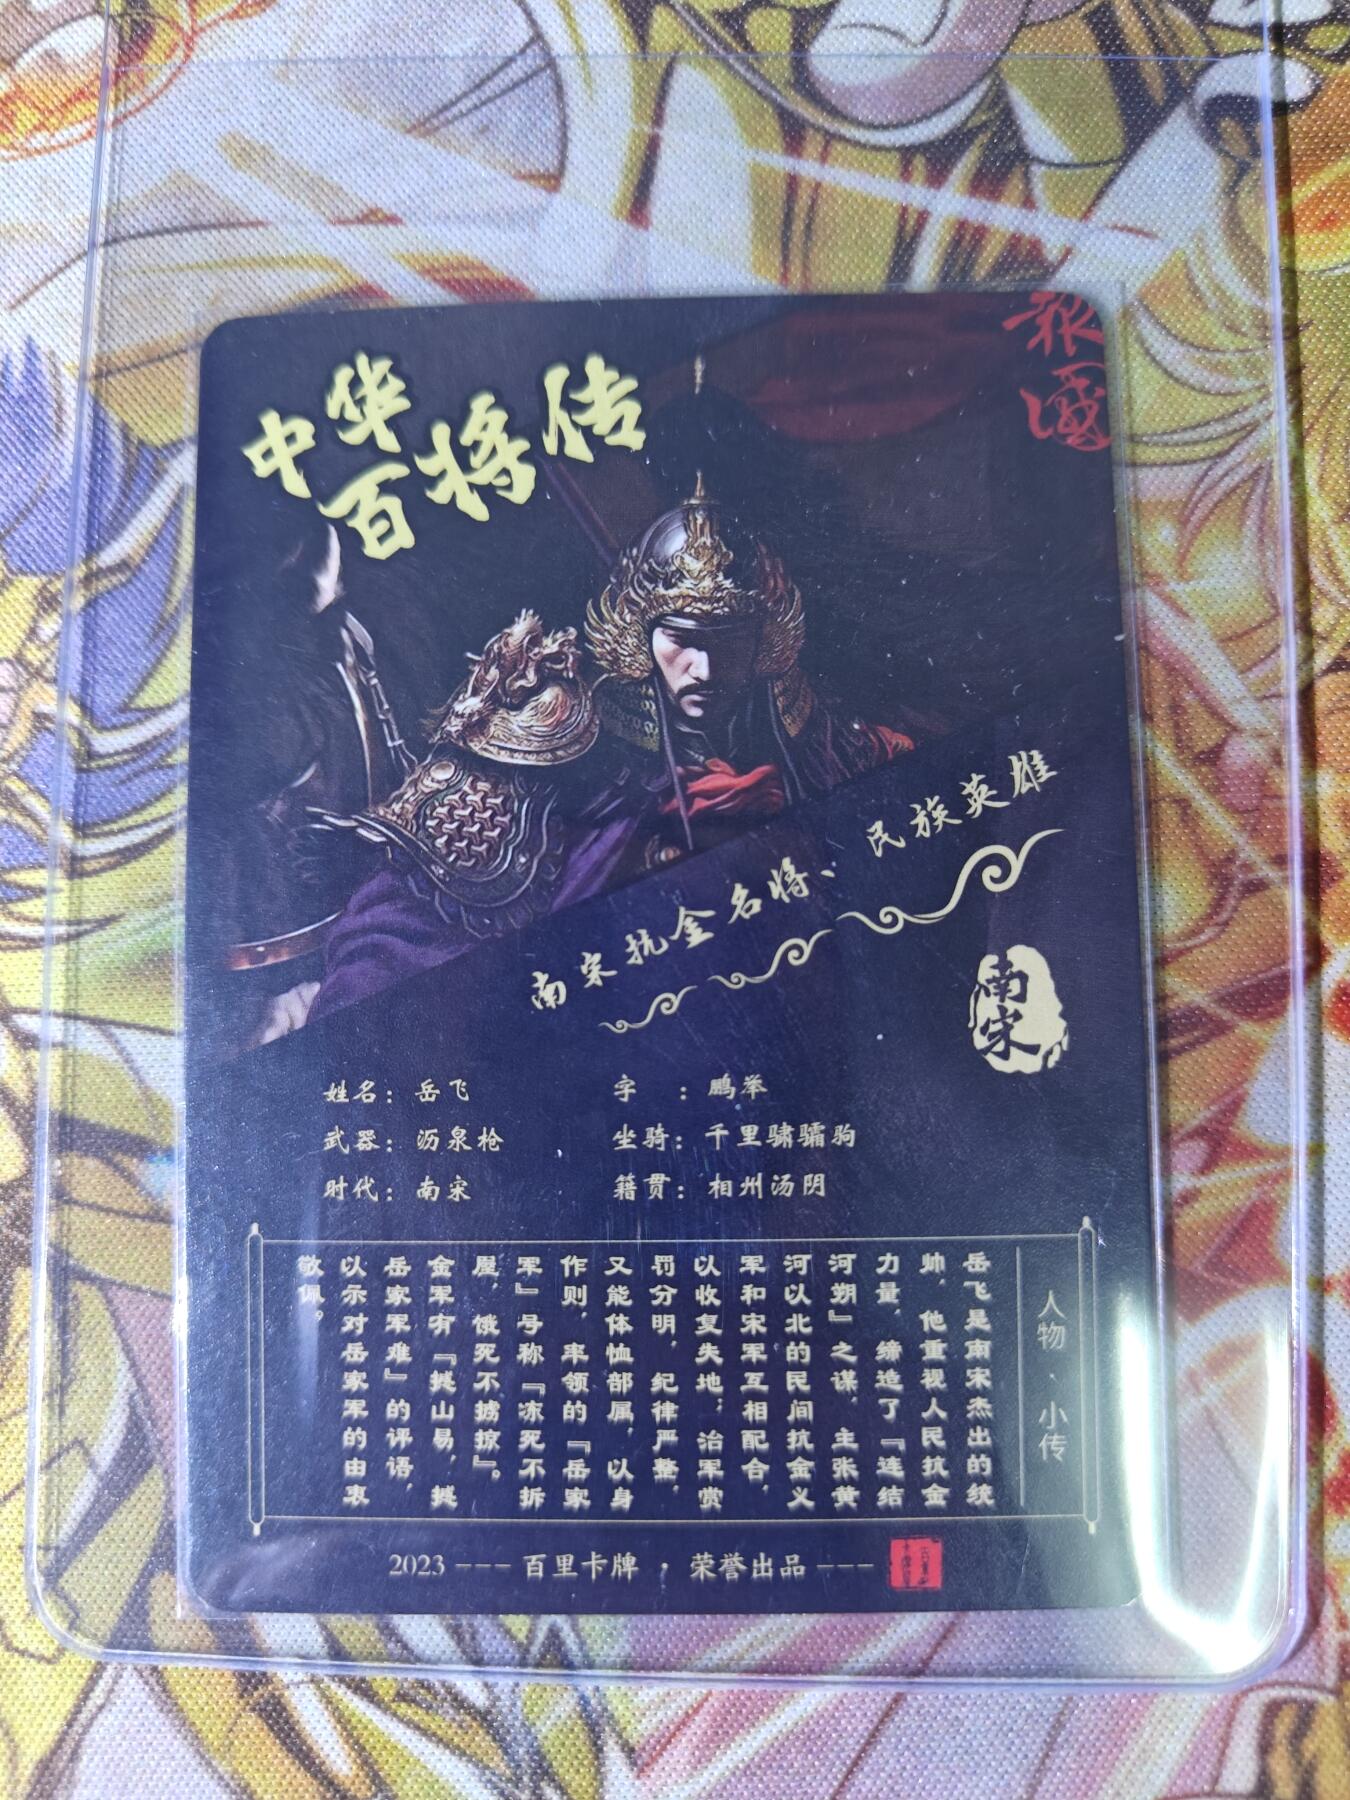 报国
中华
百将传
南宋抗金名将、民族英雄
南宋
姓名：岳飞
字　：鹏举
武器：沥泉枪
坐骑：千里骕骦驹
时代：南宋
籍贯：相州汤阴
人物·小传
岳飞是南宋杰出的统
帅，他重视人民抗金
力量，缔造了『连结
河朔』之谋，主张黄
河以北的民间抗金义
军和宋军互相配合，
以收复失地；治军赏
罚分明，纪律严整，
又能体恤部属，以身
作则，率领的『岳家
军』号称『冻死不拆
屋，饿死不掳掠』。
金军有『撼山易，撼
岳家军难』的评语，
以示对岳家军的由衷
敬佩。
2023 --- 百里卡牌 · 荣誉出品 ---